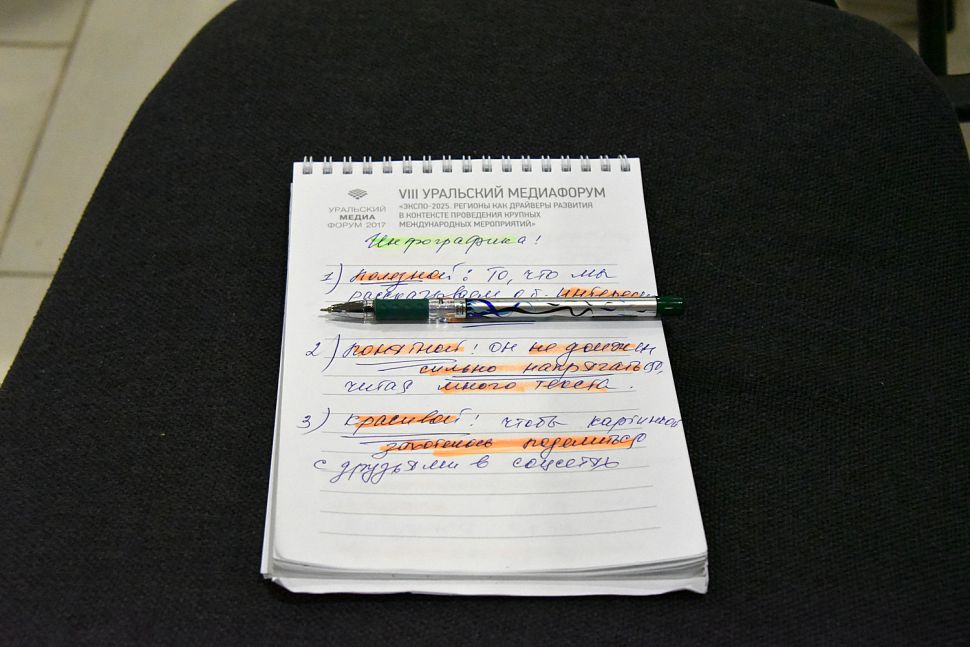 VIII УРАЛЬСКИЙ МЕДИАФОРУМ
«ЭКСПО-2025. РЕГИОНЫ КАК ДРАЙВЕРЫ РАЗВИТИЯ
В КОНТЕКСТЕ ПРОВЕДЕНИЯ КРУПНЫХ
МЕЖДУНАРОДНЫХ МЕРОПРИЯТИЙ»
УРАЛЬСКИЙ
МЕДИА
ФОРУМ 2017
Инфографика!
1) полезной: То, что мы
рассказываем
2) понятной! он не должен
сильно напрягаться,
читая много текста.
3) красивой! чтобы картинкой
захотелось поделиться
с друзьями в соцсетях